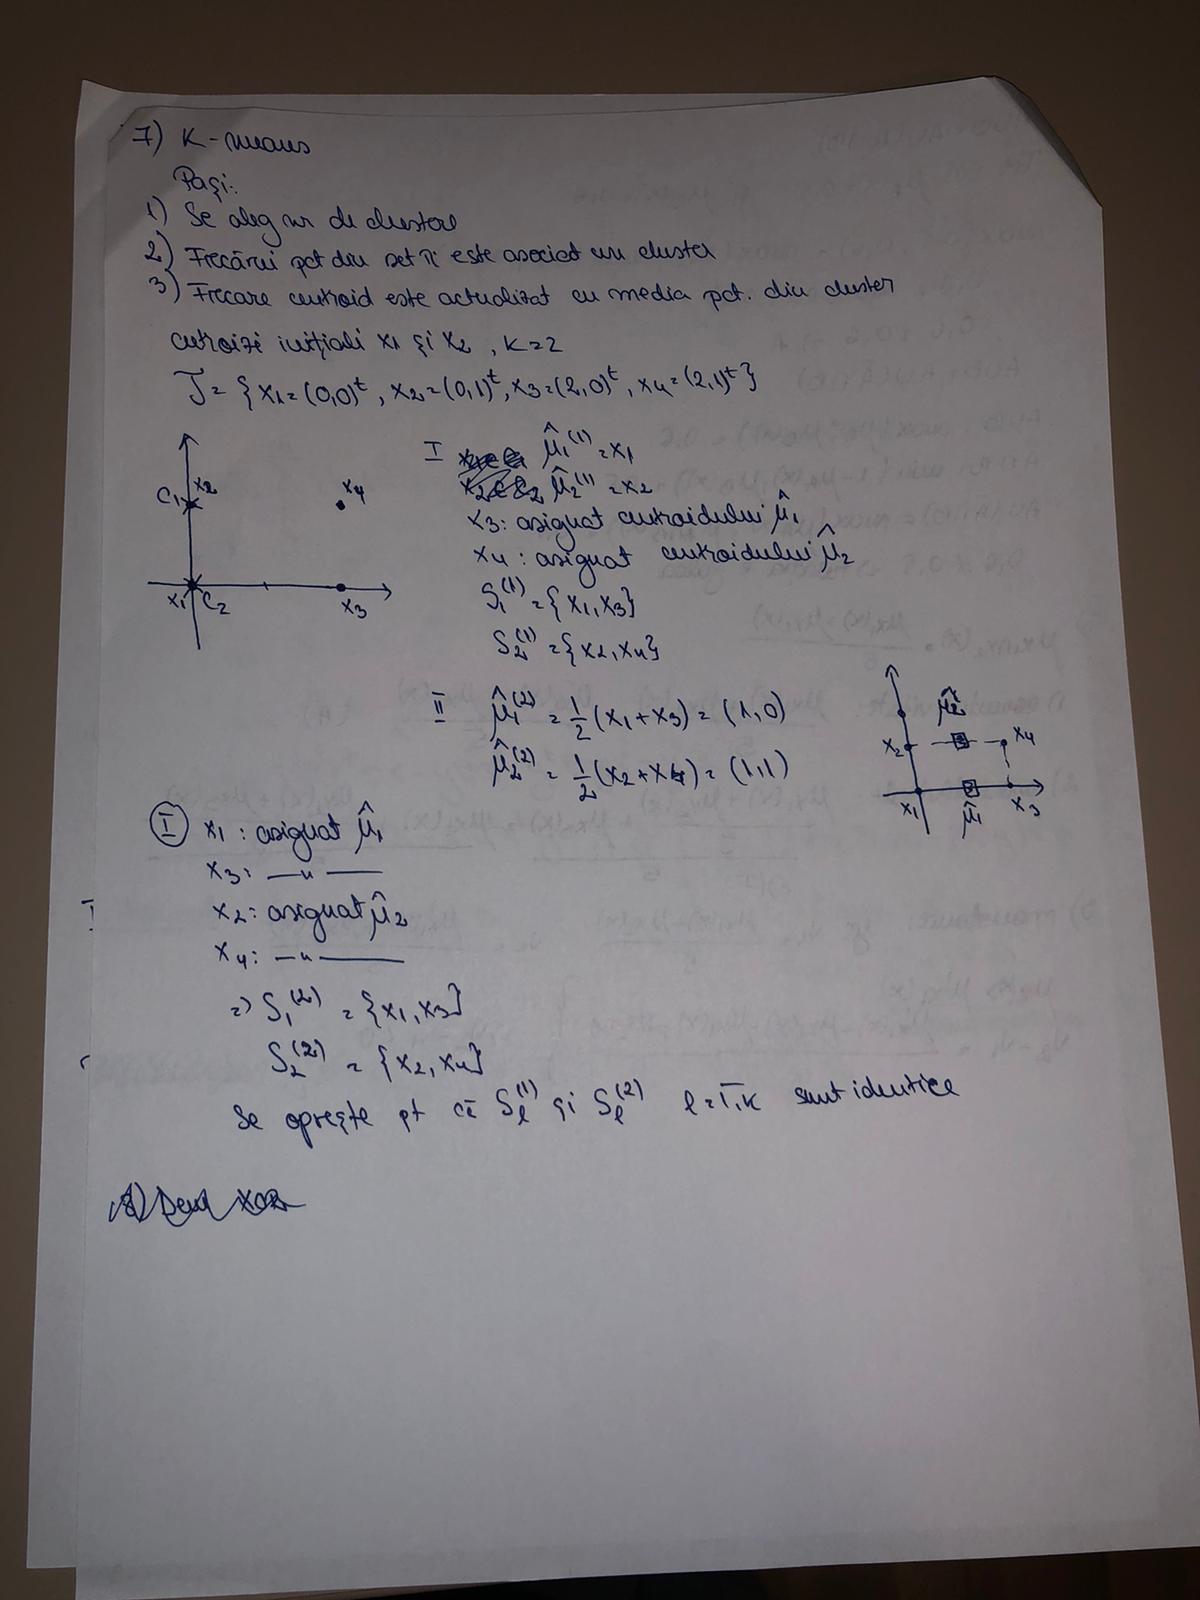 7) K-means
Pași:
1) Se aleg nr de clustere
2) Fiecărui pct din set îi este asociat un cluster
3) Fiecare centroid este actualizat cu media pct. din cluster
centroizi inițiali x1 și x2, K=2
T = { x1=(0,0)^t, x2=(0,1)^t, x3=(2,0)^t, x4=(2,1)^t }
C1 x2 x4
x1 C2 x3
I μ̂1^(1) = x1
μ̂2^(1) = x2
x3: asignat centroidului μ̂1
x4: asignat centroidului μ̂2
S1^(1) = {x1, x3}
S2^(1) = {x2, x4}
II μ̂1^(2) = 1/2 (x1 + x3) = (1,0)
μ̂2^(2) = 1/2 (x2 + x4) = (1,1)
μ̂2
x2 x4
x1 μ̂1 x3
I x1: asignat μ̂1
x3: —"—
x2: asignat μ̂2
x4: —"—
=> S1^(2) = {x1, x3}
S2^(2) = {x2, x4}
Se oprește pt că Sℓ^(1) și Sℓ^(2) ℓ=1,k sunt identice